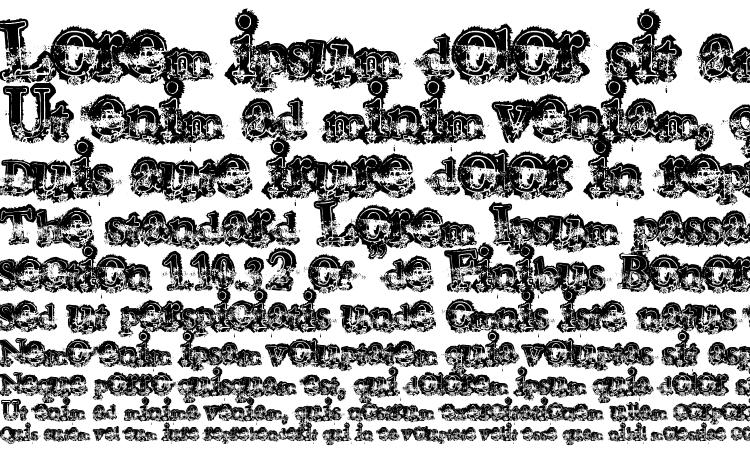 Lorem ipsum dolor sit am
Ut enim ad minim veniam, q
Duis aute irure dolor in rep
The standard Lorem Ipsum passa
section 1.10.32 of "de Finibus Bonor
Sed ut perspiciatis unde omnis iste natus
Nemo enim ipsam voluptatem quia voluptas sit asp
Neque porro quisquam est, qui dolorem ipsum quia dolor s
Ut enim ad minima veniam, quis nostrum exercitationem ullam corpor
Quis autem vel eum iure reprehenderit qui in ea voluptate velit esse quam nihil molestiae co